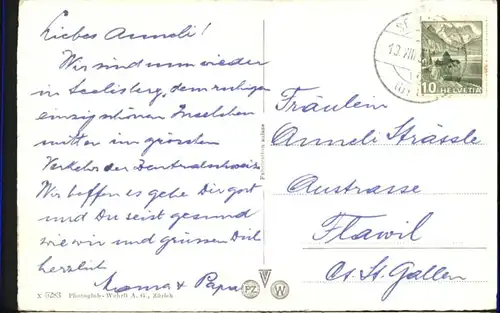 Liebes Anneli!
Wir sind nun wieder
in Seelisberg, dem ruhigen
einzig schönen Inselchen
mitten im grossen
Verkehr der Zentralschweiz
Wir hoffen es gehe Dir gut
und Du seist gesund
wie wir und grüssen Dich
herzlich
Mama + Papa
X 6283 Photoglob-Wehrli A. G., Zürich
PZ W
10 HELVETIA
Fräulein
Anneli Strässle
Austrasse
Flawil
Ct. St. Gallen